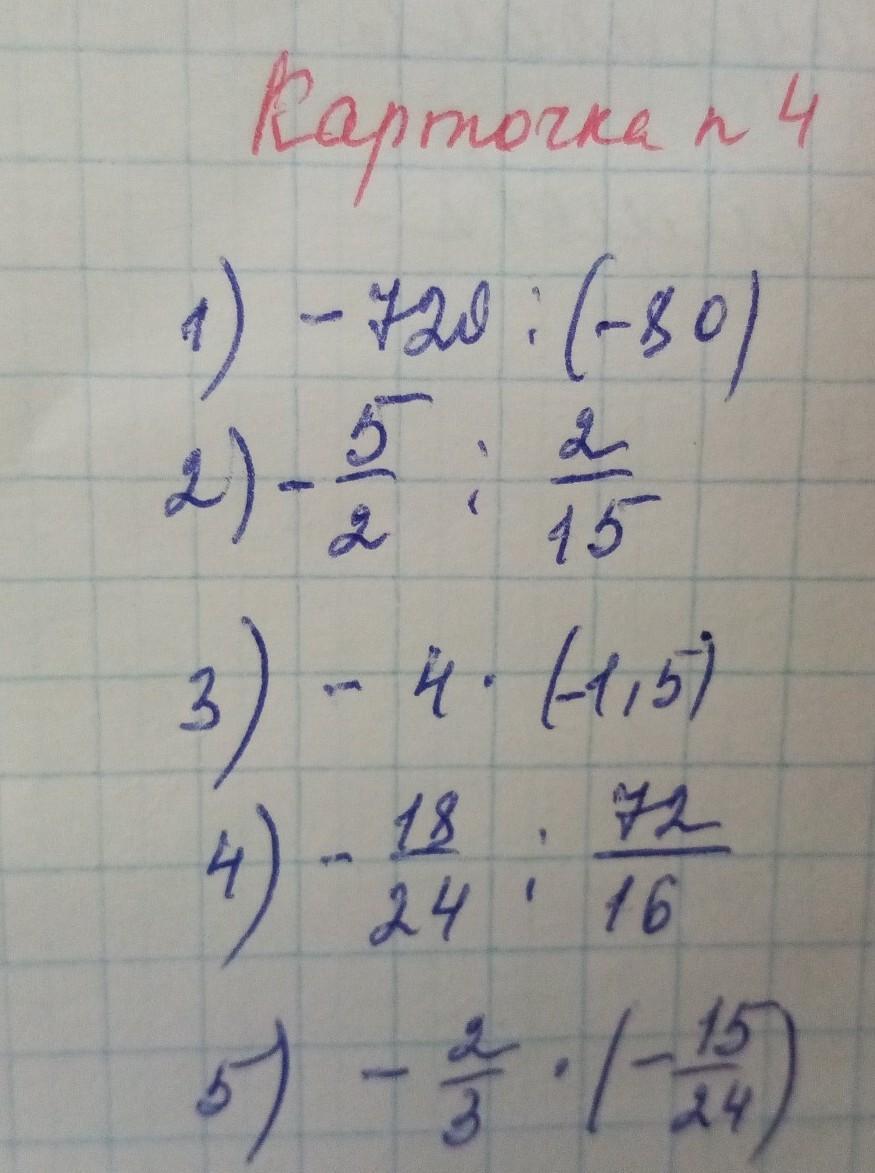 Карточка n 4
1) - 720 : (-80)
2) - 5/2 : 2/15
3) - 4 · (-1,5)
4) - 18/24 : 72/16
5) - 2/3 · (- 15/24)